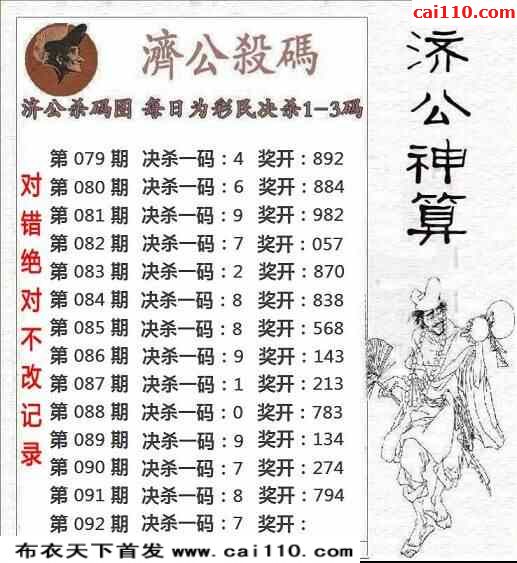 cai110.com
濟公殺碼
济公杀码图 每日为彩民决杀1-3码
济公神算
对错绝对不改记录
第 079 期 决杀一码：4 奖开：892
第 080 期 决杀一码：6 奖开：884
第 081 期 决杀一码：9 奖开：982
第 082 期 决杀一码：7 奖开：057
第 083 期 决杀一码：2 奖开：870
第 084 期 决杀一码：8 奖开：838
第 085 期 决杀一码：8 奖开：568
第 086 期 决杀一码：9 奖开：143
第 087 期 决杀一码：1 奖开：213
第 088 期 决杀一码：0 奖开：783
第 089 期 决杀一码：9 奖开：134
第 090 期 决杀一码：7 奖开：274
第 091 期 决杀一码：8 奖开：794
第 092 期 决杀一码：7 奖开：
布衣天下首发 www.cai110.com